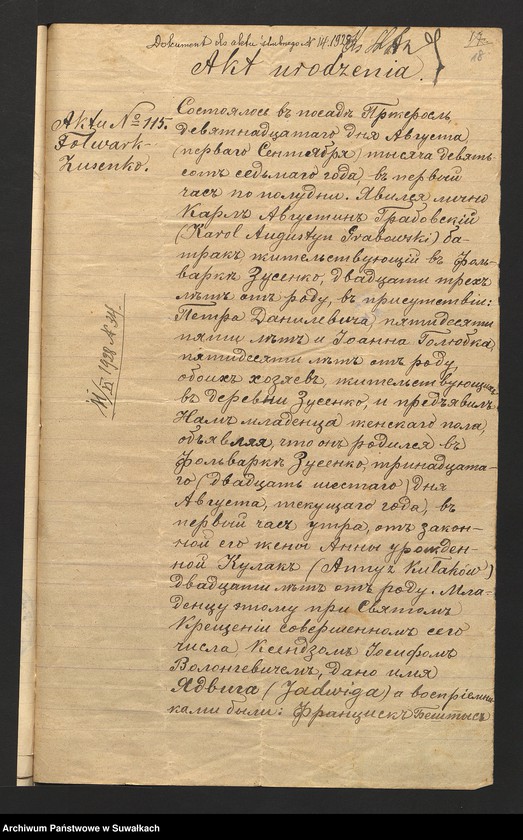 Dokument do aktu ślubnego № 14. 1928
17
18
Akt urodzenia.
Akta № 115.
Folwark-
Zusenko.
Состоялось въ посадѣ Пржеросль,
девятнадцатаго дня Августа
(перваго Сентября) тысяча девять-
сотъ седьмаго года, въ первый
часъ по полудни. Явился лично
Карлъ Августинъ Грабовскій
(Karol Augustyn Grabowski) ба-
тракъ жительствующій въ Фоль-
варкѣ Зусенко, двадцати трехъ
лѣтъ отъ роду, въ присутствіи:
Петра Данилевича пятидесяти
пяти лѣтъ и Іоанна Голюбка
пятидесяти лѣтъ отъ роду,
обоихъ хозяевъ, жительствующихъ
въ деревни Зусенко, и предъявилъ
Намъ младенца женскаго пола,
объявляя, что онъ родился въ
Фольваркѣ Зусенко, тринадцата-
го (двадцать шестаго) дня
Августа, текущаго года, въ
первый часъ утра, отъ закон-
ной его жены Анны урожден-
ной Кулакъ (Anny z Kułaków)
двадцати лѣтъ отъ роду. Мла-
денцу этому при Святомъ
Крещеніи совершенномъ сего
числа Ксендзомъ Іосифомъ
Волонгевичемъ, дано имя
Ядвига (Jadwiga) а воспріемни-
ками были: Францискъ
Archiwum Państwowe w Suwałkach